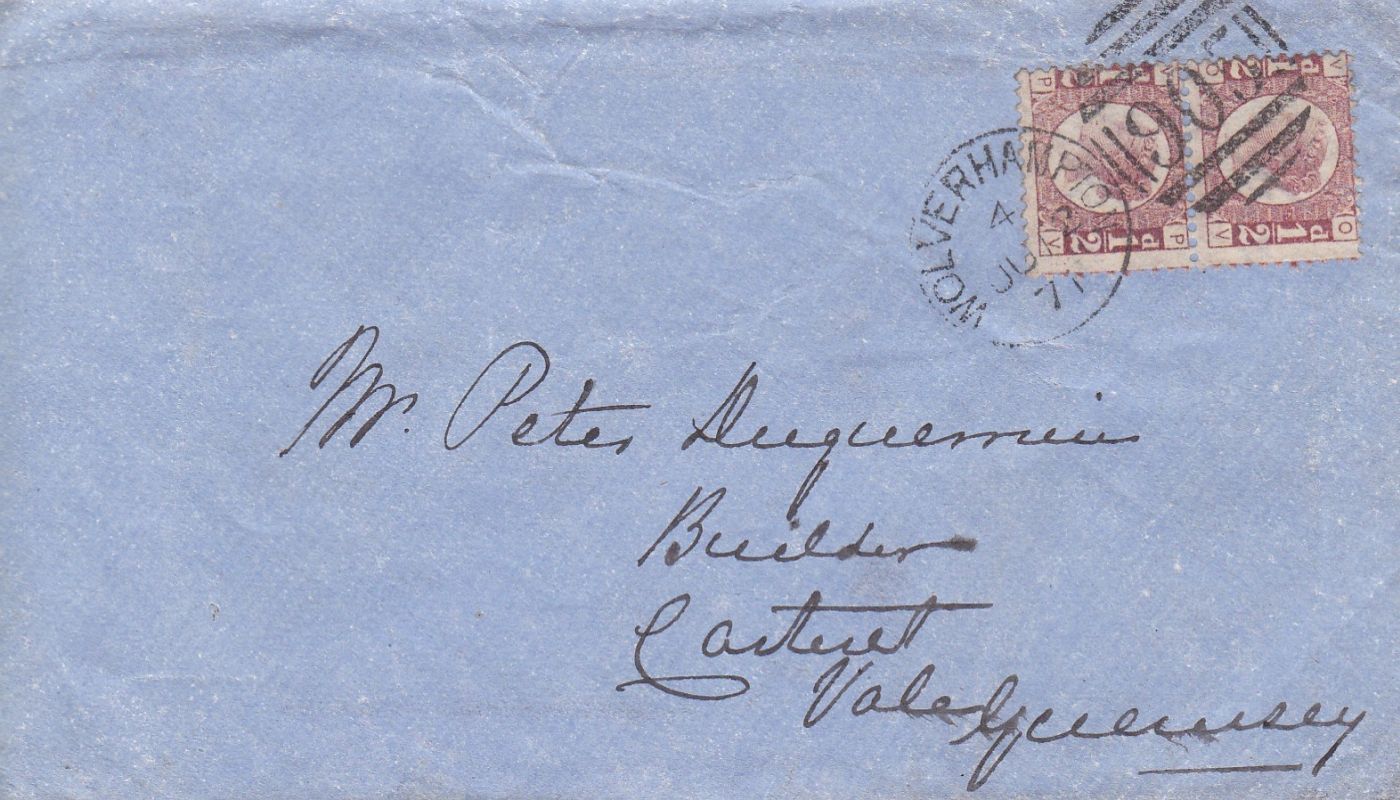 905
WOLVERHAMPTON
4
JU 2
71
Mr. Peter Duquemin
Builder
Carteret
Vale Guernsey